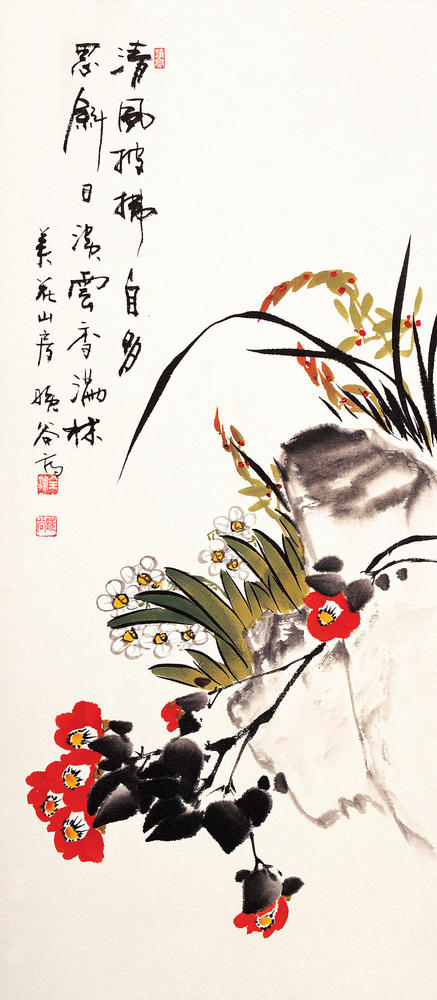 清風披拂自多
思斜日澹雲香滿林
美花山房谷寫